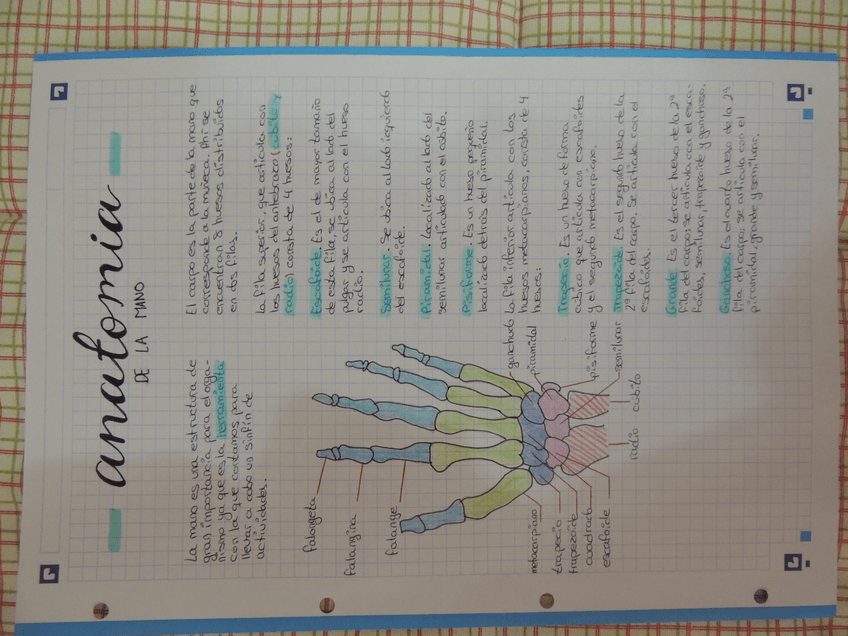 anatomia
DE LA MANO
La mano es una estructura de
gran importancia para el orga-
nismo ya que es la herramienta
con la que contamos para
llevar a cabo un sinfín de
actividades.
falangeta
falangina
falange
metacarpiano
trapecio
trapezoide
cuadrado
escafoide
radio
cúbito
semilunar
pisiforme
piramidal
ganchudo
El carpo es la parte de la mano que
corresponde a la muñeca. Ahí se
encuentran 8 huesos distribuidos
en dos filas.
La fila superior, que articula con
los huesos del antebrazo (cúbito y
radio) consta de 4 huesos:
Escafoide. Es el de mayor tamaño
de esta fila, se ubica al lado del
pulgar y se articula con el hueso
radio.
Semilunar. Se ubica al lado izquierdo
del escafoide.
Piramidal. Localizado al lado del
semilunar articulado con el cúbito.
Pisiforme. Es un hueso pequeño
localizado detrás del piramidal.
La fila inferior articula con los
huesos metacarpianos, consta de 4
huesos:
Trapecio. Es un hueso de forma
cúbica que articula con escafoides
y el segundo metacarpiano.
Trapezoide. Es el segundo hueso de la
2ª fila del carpo. Se articula con el
escafoides.
Grande. Es el tercer hueso de la 2ª
fila del carpo; se articula con el esca-
foides, semilunar, trapezoide y ganchoso.
Ganchoso. Es el cuarto hueso de la 2ª
fila del carpo; se articula con el
piramidal, grande y semilunar.